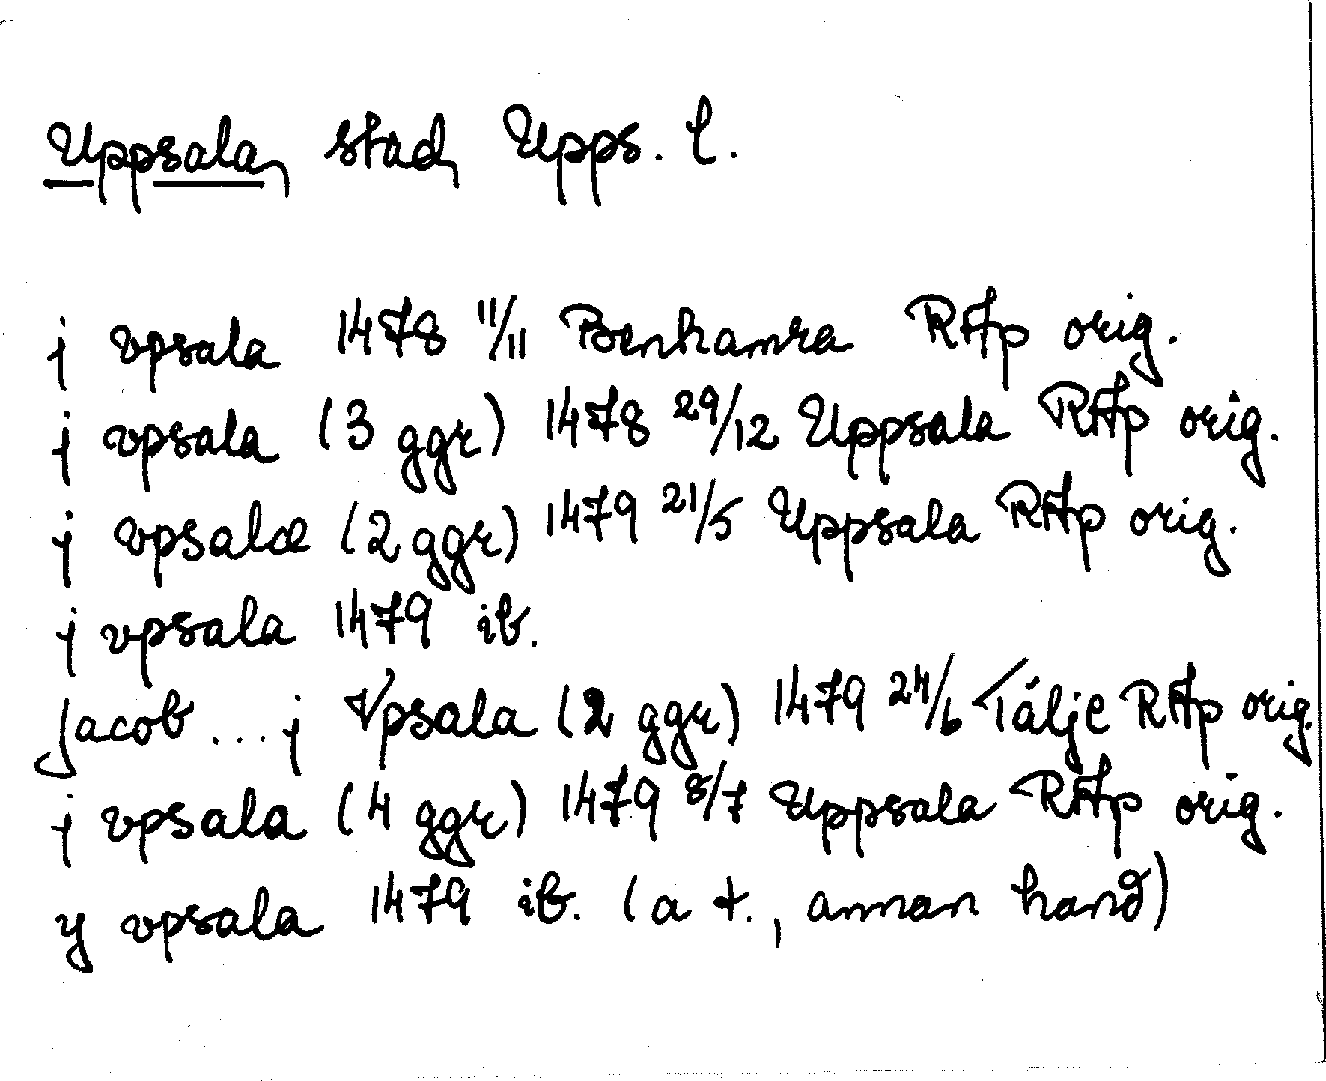 Uppsala, stad, Upps. l.
j vpsala 1478 11/11 Benhamra RAp orig.
j vpsala (3 ggr) 1478 29/12 Uppsala RAp orig.
j vpsalæ (2 ggr) 1479 21/5 Uppsala RAp orig.
j vpsala 1479 ib.
Jacob ... j Vpsala (2 ggr) 1479 24/6 Tälje RAp orig.
j vpsala (4 ggr) 1479 8/7 Uppsala RAp orig.
y vpsala 1479 ib. (a t., annan hand)